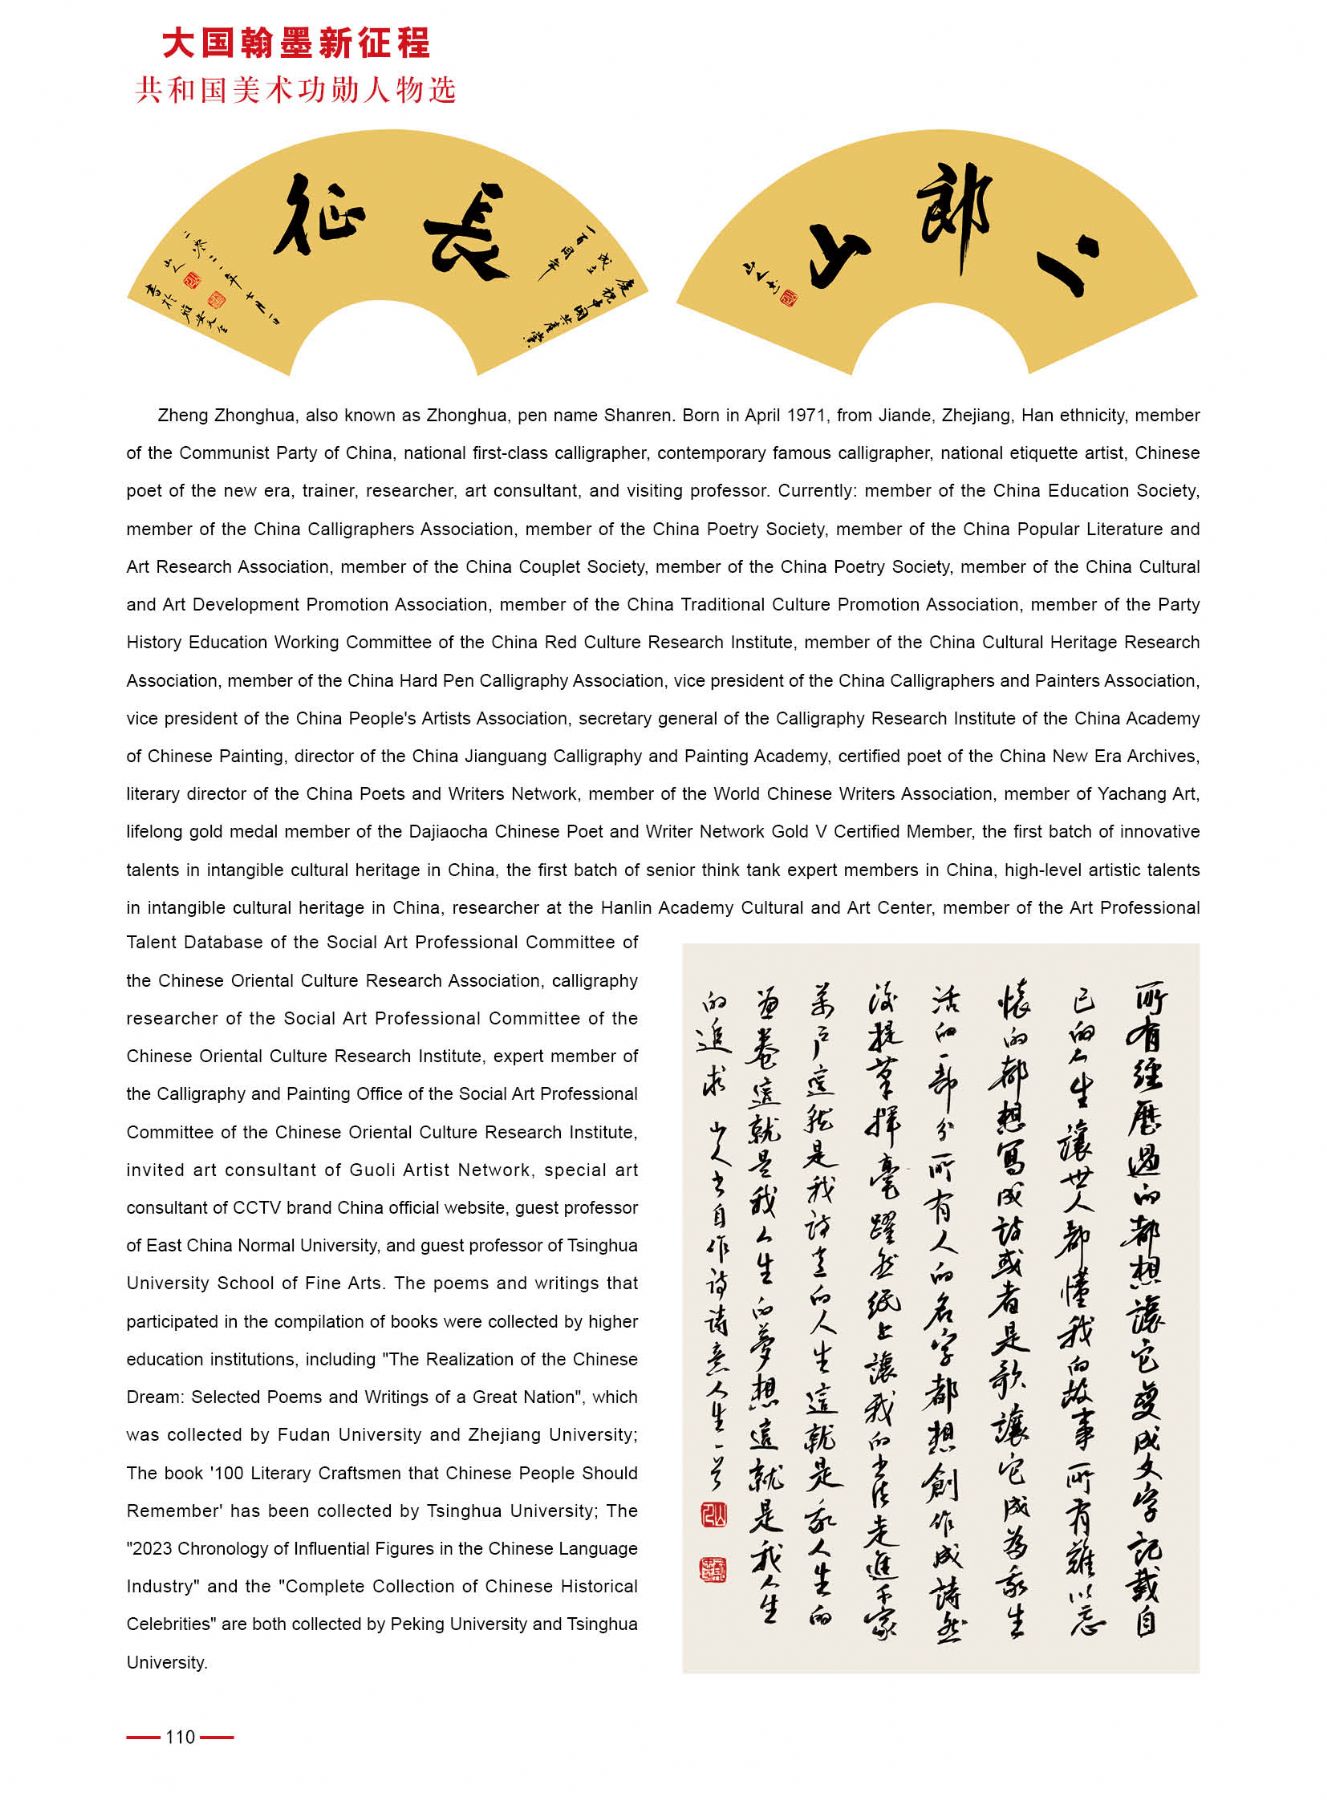 大国翰墨新征程
共和国美术功勋人物选
長征
慶祝中國共產黨
成立
一百周年
二〇二一年十月一日
山人
二郎山
山人书
Zheng Zhonghua, also known as Zhonghua, pen name Shanren. Born in April 1971, from Jiande, Zhejiang, Han ethnicity, member
of the Communist Party of China, national first-class calligrapher, contemporary famous calligrapher, national etiquette artist, Chinese
poet of the new era, trainer, researcher, art consultant, and visiting professor. Currently: member of the China Education Society,
member of the China Calligraphers Association, member of the China Poetry Society, member of the China Popular Literature and
Art Research Association, member of the China Couplet Society, member of the China Poetry Society, member of the China Cultural
and Art Development Promotion Association, member of the China Traditional Culture Promotion Association, member of the Party
History Education Working Committee of the China Red Culture Research Institute, member of the China Cultural Heritage Research
Association, member of the China Hard Pen Calligraphy Association, vice president of the China Calligraphers and Painters Association,
vice president of the China People's Artists Association, secretary general of the Calligraphy Research Institute of the China Academy
of Chinese Painting, director of the China Jianguang Calligraphy and Painting Academy, certified poet of the China New Era Archives,
literary director of the China Poets and Writers Network, member of the World Chinese Writers Association, member of Yachang Art,
lifelong gold medal member of the Dajiaocha Chinese Poet and Writer Network Gold V Certified Member, the first batch of innovative
talents in intangible cultural heritage in China, the first batch of senior think tank expert members in China, high-level artistic talents
in intangible cultural heritage in China, researcher at the Hanlin Academy Cultural and Art Center, member of the Art Professional
Talent Database of the Social Art Professional Committee of
the Chinese Oriental Culture Research Association, calligraphy
researcher of the Social Art Professional Committee of the
Chinese Oriental Culture Research Institute, expert member of
the Calligraphy and Painting Office of the Social Art Professional
Committee of the Chinese Oriental Culture Research Institute,
invited art consultant of Guoli Artist Network, special art
consultant of CCTV brand China official website, guest professor
of East China Normal University, and guest professor of Tsinghua
University School of Fine Arts. The poems and writings that
participated in the compilation of books were collected by higher
education institutions, including "The Realization of the Chinese
Dream: Selected Poems and Writings of a Great Nation", which
was collected by Fudan University and Zhejiang University;
The book '100 Literary Craftsmen that Chinese People Should
Remember' has been collected by Tsinghua University; The
"2023 Chronology of Influential Figures in the Chinese Language
Industry" and the "Complete Collection of Chinese Historical
Celebrities" are both collected by Peking University and Tsinghua
University.
所有經歷過的都想讓它變成文字記載自
己的人生讓世人都懂我的故事所有難以忘
懷的都想寫成詩或者是歌讓它成為我生
活的一部分所有人的名字都想創作成詩然
後提筆揮毫躍然紙上讓我的书法走進千家
萬戶這就是我詩意的人生這就是我人生的
畫卷這就是我人生的夢想這就是我人生
的追求 山人书自作詩詩意人生一首
110